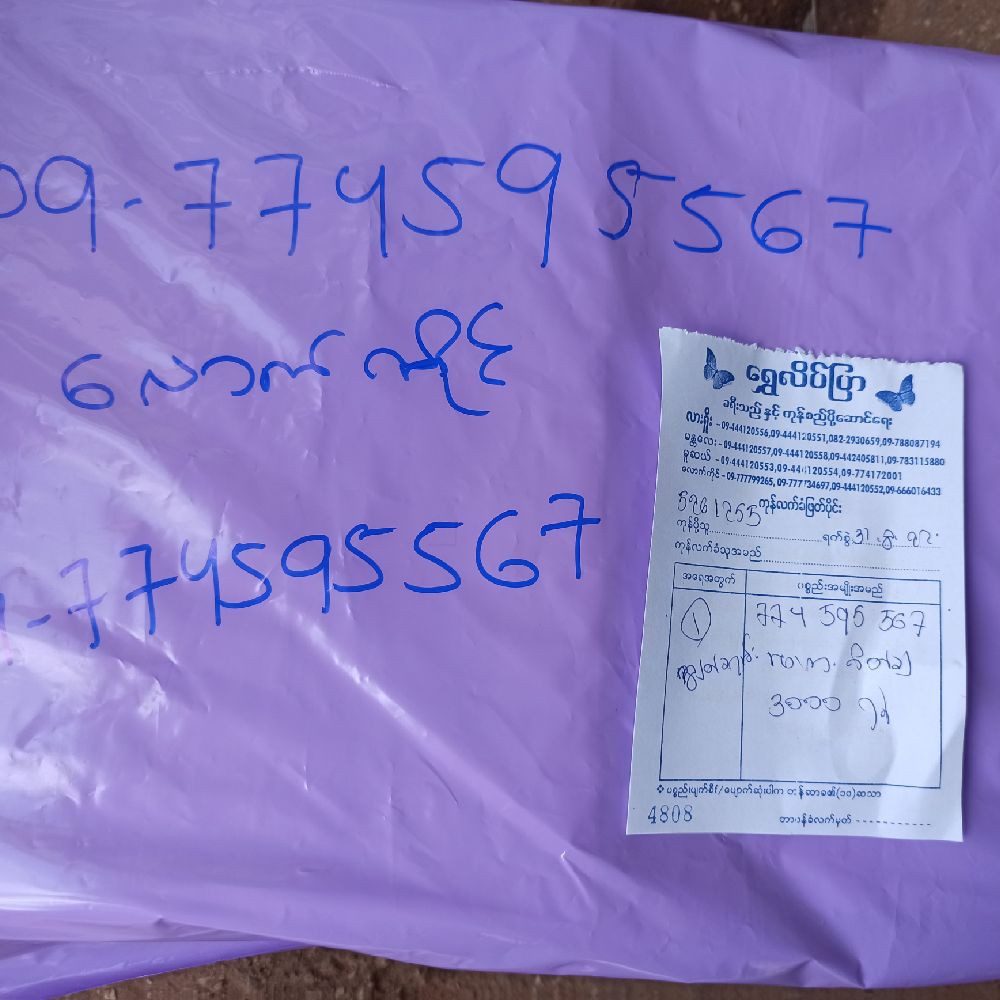 09-774595567
လောက်ကိုင်
9-774595567
ရွှေလိပ်ပြာ
ခရီးသည် နှင့် ကုန်စည်ပို့ဆောင်ရေး
လားရှိုး - 09-444120556,09-444120551,082-2930659,09-788087194
မန္တလေး - 09-444120557,09-444120558,09-442405811,09-783115880
မူဆယ် - 09-444120553,09-444120554,09-774172001
လောက်ကိုင် - 09-777799265, 09-777734697,09-444120552,09-666016433
ကုန်လက်ခံဖြတ်ပိုင်း
ကုန်ပို့သူ ရက်စွဲ
ကုန်လက်ခံသူအမည်
အရေအတွက် ပစ္စည်းအမျိုးအမည်
၁ 774 595 567
3000
ပစ္စည်းပျက်စီး/ပျောက်ဆုံးပါက တန်ဆာခ၏(၁၀)ဆသာ
4808 တာဝန်ခံလက်မှတ်